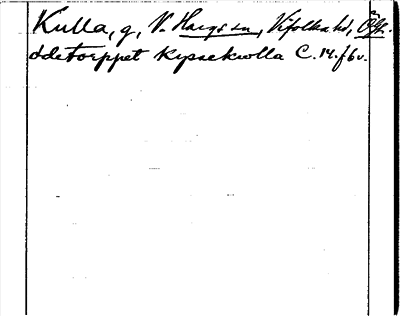 Kulla, g, V. Hargs sn, Vifolka hd, Ög.
ödetorppet Kypaekulla C. 14. f6v.